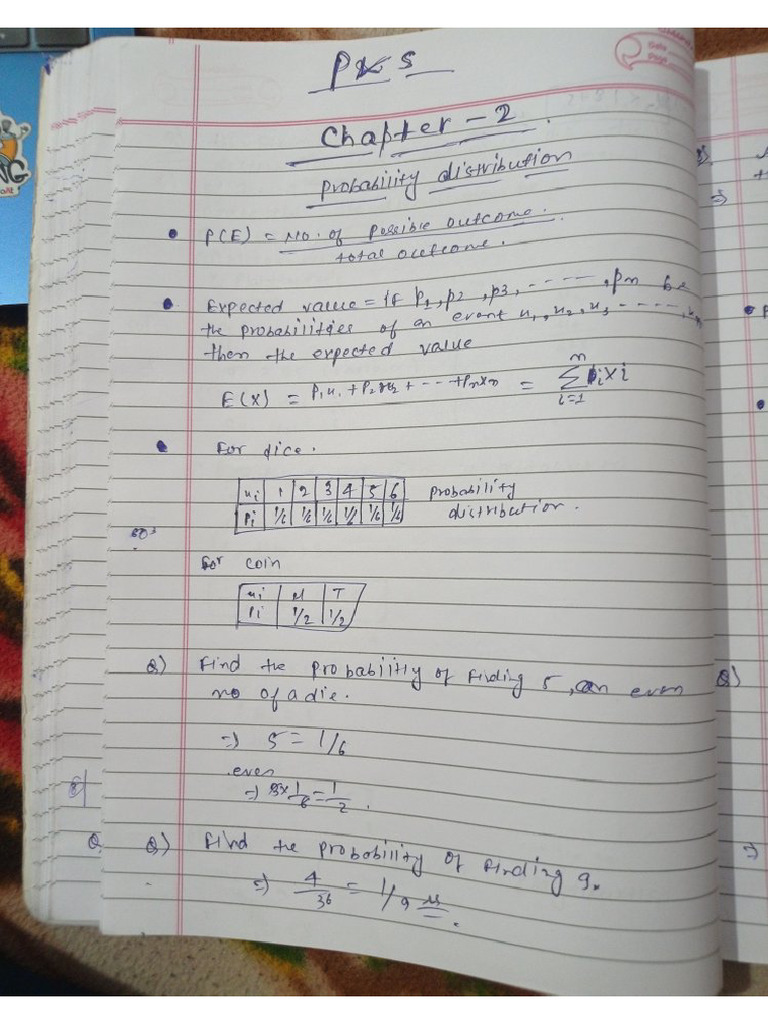 P&S
Chapter - 2
Probability distribution
• P(E) = No. of possible outcome.
total outcome.
• Expected value = if p1, p2, p3, -----, pn be
the probabilities of an event x1, x2, x3 -----, xn
then the expected value
E(X) = p1x1 + p2x2 + --- + pnxn = n∑i=1 pixi
• For dice.
xi 1 2 3 4 5 6 probability
pi 1/6 1/6 1/6 1/6 1/6 1/6 distribution.
For coin
xi H T
pi 1/2 1/2
Q) Find the probability of finding 5, an even
no of a die.
=) 5 = 1/6
even
=) 3x1/6 = 1/2.
Q) Find the probability of finding 9.
=) 4/36 = 1/9